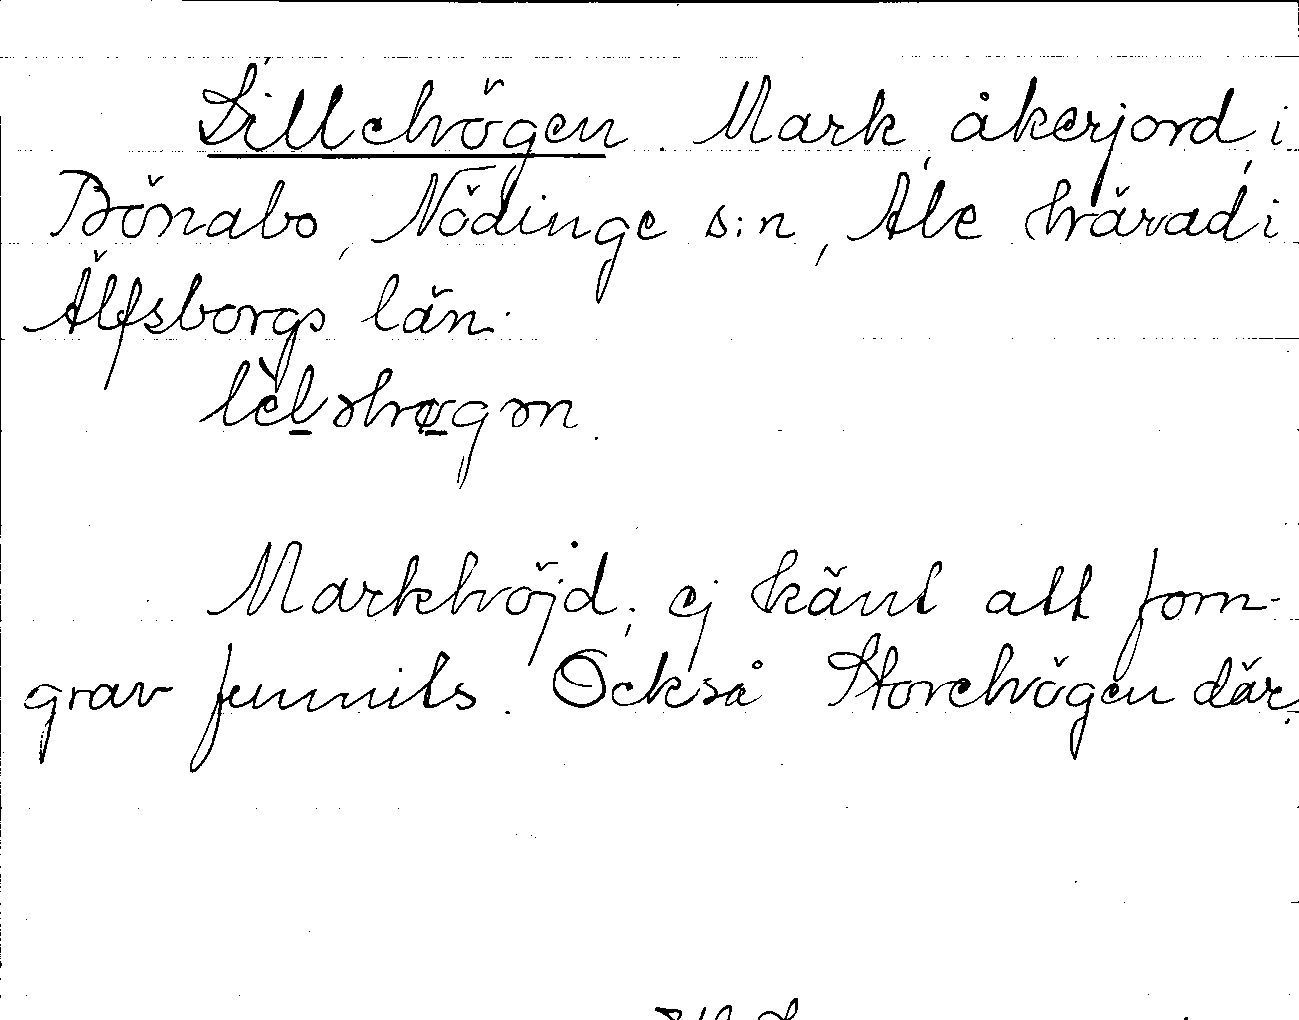 Lillehögen. Mark, åkerjord, i
Bönabo, Nödinge s:n, Ale härad i
Älfsborgs län.
lèləhøgən.
Markhöjd; ej känt att forn-
grav funnits. Också Storehögen där.